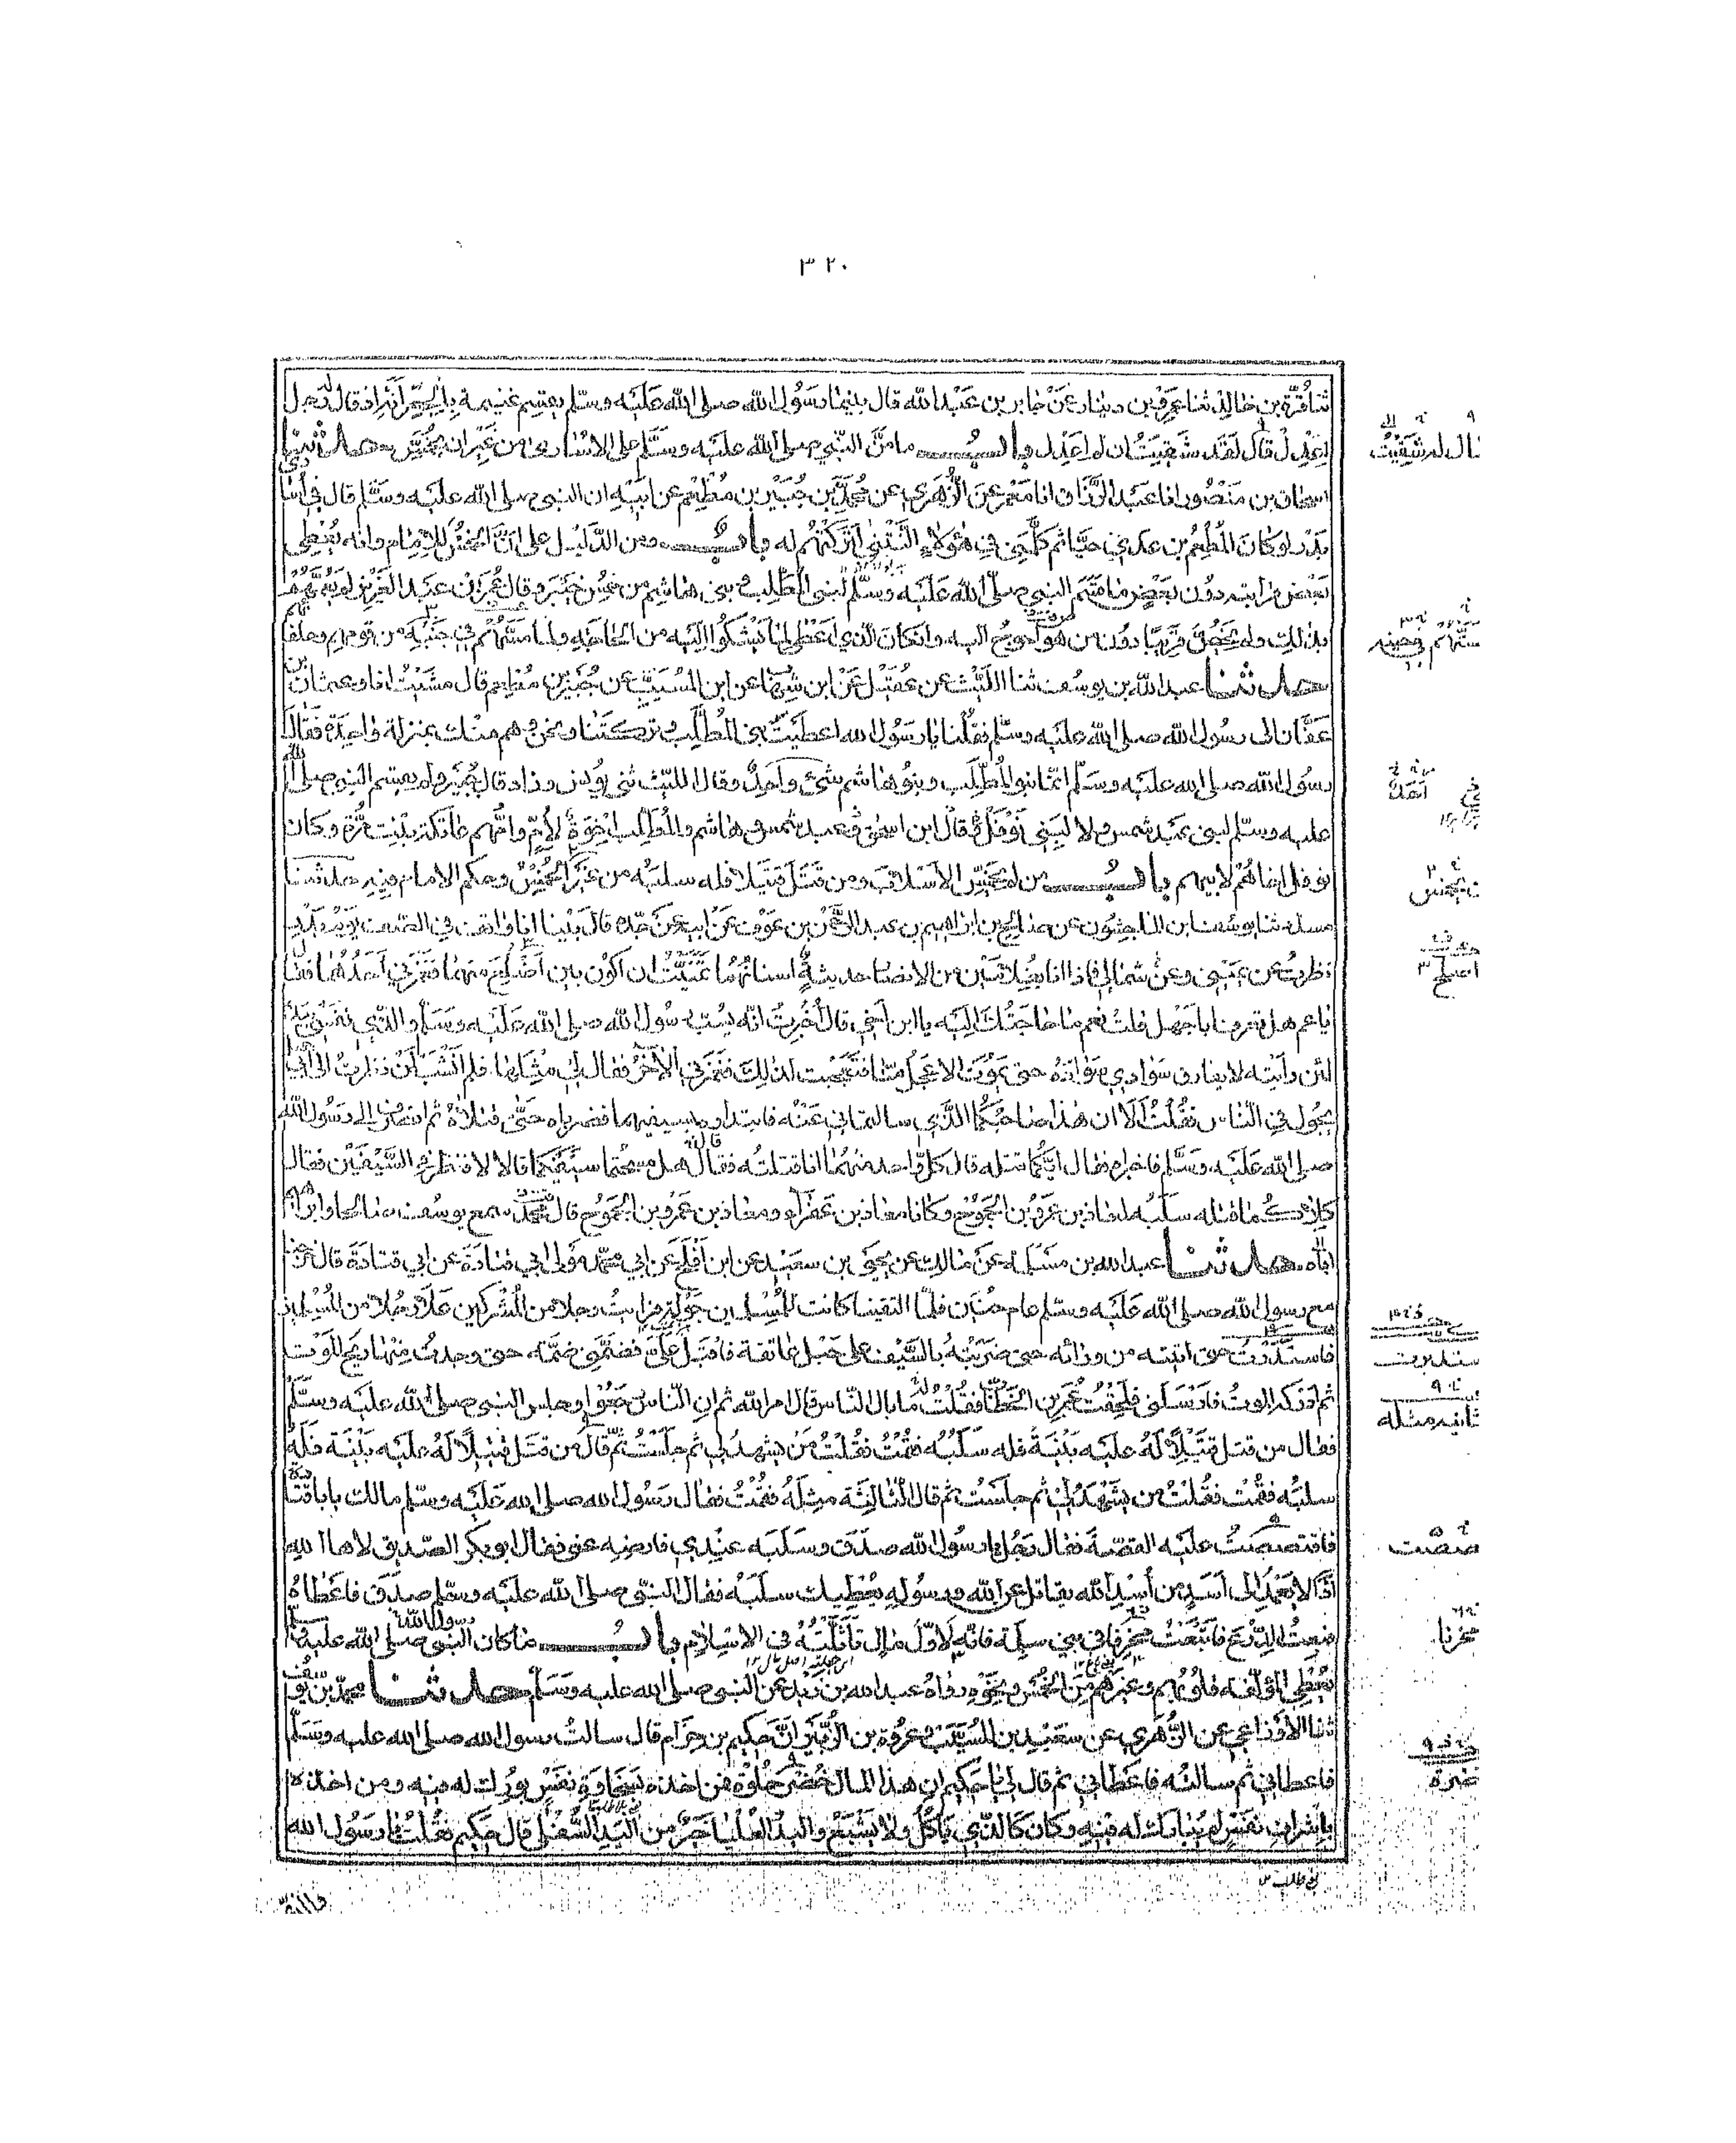 ٣٢٠
ثنا قُرّة بن خالد ثنا عمرو بن دينار عن جابر بن عبد الله قال بينما رسول الله صلى الله عليه وسلم يقسم غنيمة بالجعرانة اذ قال له رجل
اعدل قال لقد شقيت ان لم اعدل باب ما من النبي صلى الله عليه وسلم على الاسارى من غير ان يخمس حدثنا
اسحاق بن منصور انا عبد الرزاق انا معمر عن الزهري عن محمد بن جبير بن مطعم عن ابيه ان النبي صلى الله عليه وسلم قال في اسارى
بدر لو كان المطعم بن عدي حيا ثم كلمني في هؤلاء النتنى لتركتهم له باب ومن الدليل على ان الخمس للامام وانه يعطي
بعض قرابته دون بعض ما قسم النبي صلى الله عليه وسلم لبني المطلب وبني هاشم من خمس خيبر وقال عمر بن عبد العزيز لم يعمهم
بذلك ولم يخص قريبا دون من هو احوج اليه وان كان الذي اعطى لما يشكوا اليه من الحاجة ولما مستهم في جنبه من قومهم وحلفائهم
حدثنا عبد الله بن يوسف ثنا الليث عن عقيل عن ابن شهاب عن ابن المسيب عن جبير بن مطعم قال مشيت انا وعثمان بن
عفان الى رسول الله صلى الله عليه وسلم فقلنا يا رسول الله اعطيت بني المطلب وتركتنا ونحن وهم منك بمنزلة واحدة فقال
رسول الله صلى الله عليه وسلم انما بنو المطلب وبنو هاشم شئ واحد وقال الليث ثني يونس وزاد قال جبير ولم يقسم النبي صلى الله
عليه وسلم لبني عبد شمس ولا لبني نوفل قال ابن اسحق وعبد شمس وهاشم والمطلب اخوة لام وامهم عاتكة بنت مرة وكان
نوفل اخاهم لابيهم باب من لم يخمس الاسلاب ومن قتل قتيلا فله سلبه من غير الخمس وحكم الامام فيه حدثنا
مسدد ثنا يوسف ابن الماجشون عن صالح بن ابراهيم بن عبد الرحمن بن عوف عن ابيه عن جده قال بينا انا واقف في الصف يوم بدر
نظرت عن يميني وعن شمالي فاذا انا بغلامين من الانصار حديثة اسنانهما تمنيت ان اكون بين اضلع منهما فغمزني احدهما فقال
يا عم هل تعرف ابا جهل قلت نعم ما حاجتك اليه يا ابن اخي قال اُخبرت انه يسب رسول الله صلى الله عليه وسلم والذي نفسي بيده
لئن رايته لا يفارق سوادي سواده حتى يموت الاعجل منا فتعجبت لذلك فغمزني الاخر فقال لي مثلها فلم انشب ان نظرت الى ابي جهل
يجول في الناس فقلت الا ان هذا صاحبكما الذي سالتماني عنه فابتدراه بسيفيهما فضرباه حتى قتلاه ثم انصرفا الى رسول الله
صلى الله عليه وسلم فاخبراه فقال ايكما قتله قال كل واحد منهما انا قتلته فقال هل مسحتما سيفيكما قالا لا فنظر في السيفين فقال
كلاكما قتله سلبه لمعاذ بن عمرو بن الجموح وكانا معاذ بن عفراء ومعاذ بن عمرو بن الجموح قال محمد سمع يوسف صالحا وابراهيم
اباه حدثنا عبد الله بن مسلمة عن مالك عن يحيى بن سعيد عن ابن افلح عن ابي محمد مولى ابي قتادة عن ابي قتادة قال خرجنا
مع رسول الله صلى الله عليه وسلم عام حنين فلما التقينا كانت للمسلمين جولة فرايت رجلا من المشركين علا رجلا من المسلمين
فاستدرت حتى اتيته من ورائه حتى ضربته بالسيف على حبل عاتقه فاقبل علي فضمني ضمة حتى وجدت منها ريح الموت
ثم ادركه الموت فارسلني فلحقت عمر بن الخطاب فقلت له ما بال الناس قال امر الله ثم ان الناس رجعوا وجلس النبي صلى الله عليه وسلم
فقال من قتل قتيلا له عليه بينة فله سلبه فقمت فقلت من يشهد لي ثم جلست ثم قال من قتل قتيلا له عليه بينة فله
سلبه فقمت فقلت من يشهد لي ثم جلست ثم قال الثالثة مثله فقمت فقال رسول الله صلى الله عليه وسلم مالك يا با قتادة
فاقتصصت عليه القصة فقال رجل يا رسول الله صدق وسلبه عندي فارضه عني فقال ابو بكر الصديق لاها الله
اذا لا يعمد الى اسد من اسد الله يقاتل عن الله ورسوله يعطيك سلبه فقال النبي صلى الله عليه وسلم صدق فاعطاه
فبعت الدرع فابتعت مخرفا في بني سلمة فانه لاول مال تاثلته في الاسلام باب ما كان النبي صلى الله عليه وسلم
يعطي المؤلفة قلوبهم وغيرهم من الخمس ونحوه رواه عبد الله بن زيد عن النبي صلى الله عليه وسلم حدثنا محمد بن يوسف
ثنا الاوزاعي عن الزهري عن سعيد بن المسيب وعروة بن الزبير ان حكيم بن حزام قال سالت رسول الله صلى الله عليه وسلم
فاعطاني ثم سالته فاعطاني ثم قال لي يا حكيم ان هذا المال خضر حلوة فمن اخذه بسخاوة نفس بورك له فيه ومن اخذه
باشراف نفس لم يبارك له فيه وكان كالذي ياكل ولا يشبع واليد العليا خير من اليد السفلى قال حكيم فقلت يا رسول الله